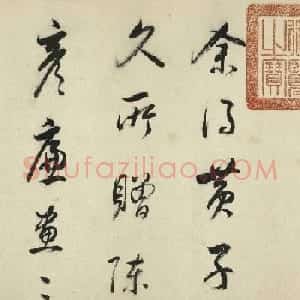 余得黄子
久所贈陳
彦廉畫二
Shufaziliao.com